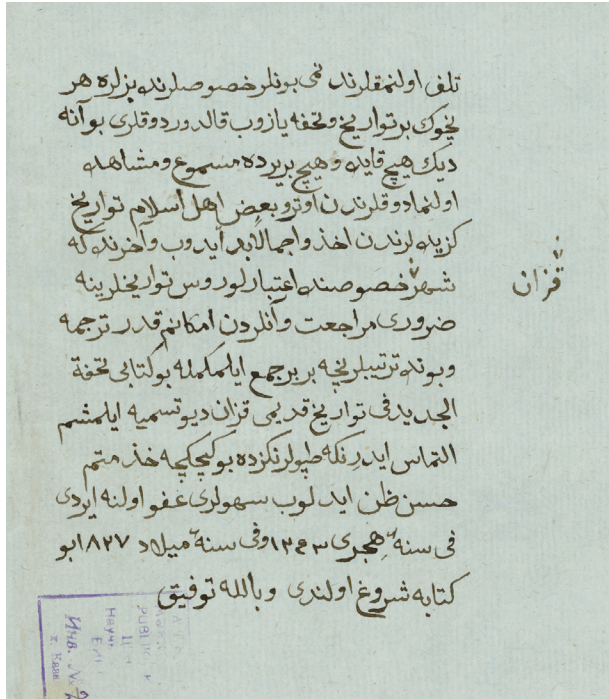 تلف اولنمقلرندن تمی بونلر خصوصلرنده بزلره هر
نیچوك بر تواریخ و تحفه یازوب قالدوردوقلری بو آنه
دیك هیچ قایده و هیچ بریرده مسموع و مشاهده
اولنمادوقلرندن اوترو بعض اهل اسلام تواریخ
كزیده لرندن اخذ و اجمالا ایدوب و آخرنده كه
شهر خصوصنده اعتبارلو روس تواریخلرینه
قزان
ضروری مراجعت و آنلردن امكانم قدر ترجمه
و بونده ترتیبلرنچه بریر جمع ایلمكمله بو كتابی تحفة
الجدید فی تواریخ قدیمی قزان دیو تسمیه ایلمشم
التماس ایدرنكه طپولرنكزده بو كچكچه خذمتم
حسن ظن ایدلوب سهولری عفو اولنه ایردی
فی سنهٔ هجری ۱۲۴۳ و فی سنهٔ میلاد ۱۸۲۷ بو
كتابه شروغ اولندی و بالله توفیق
PUBLIK
Науч
Инв. №
г. Каза